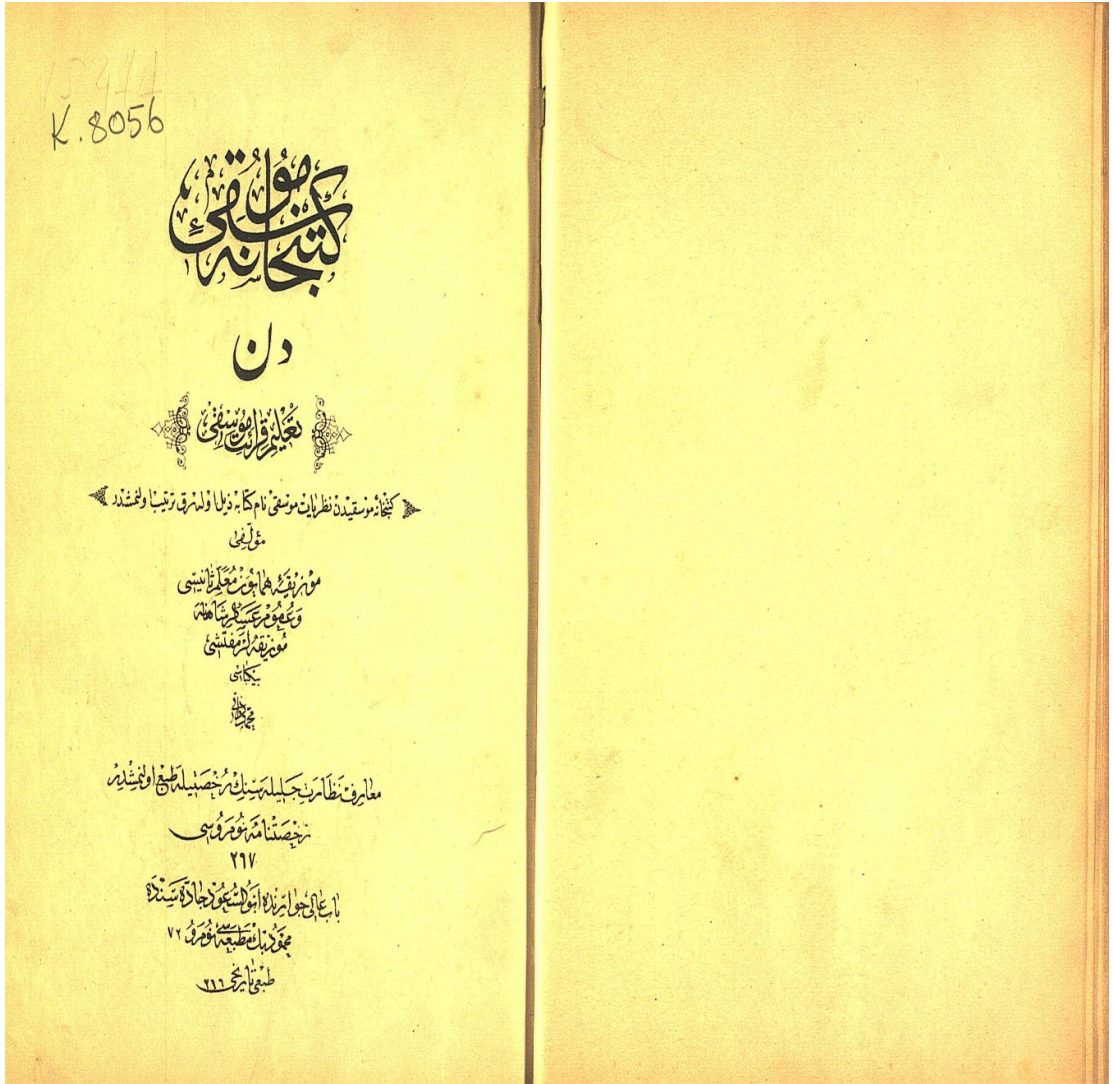 K. 8056
كتبخانهٔ موسقی
دن
تعليم قرائت موسقی
كتبخانهٔ موسقيدن نظريات موسقی نام كتابه ذيل اوله رق ترتيب اولنمشدر
مؤلفی
موزيقهٔ همايون معلم ثانيسی
وعموم عساكر شاهانه
موزيقه لر مفتشی
بيكباشی
معارف نظارت جليله سنك رخصتيله طبع اولنمشدر
رخصتنامه نومروسی
٢٦٧
باب عالی جوارنده ابوالسعود جاده سنده
محمود بك مطبعه سی نومرو ٧٢
طبعی تاريخی ٣١٦